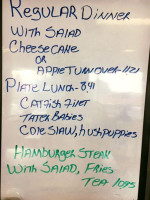 Regular Dinner
With Salad
Cheesecake
or
Apple Turnover - 1121
Plate Lunch - 891
Catfish Filet
Tater Babies
Coleslaw, hushpuppies
Hamburger Steak
With Salad, Fries
Tea 1095